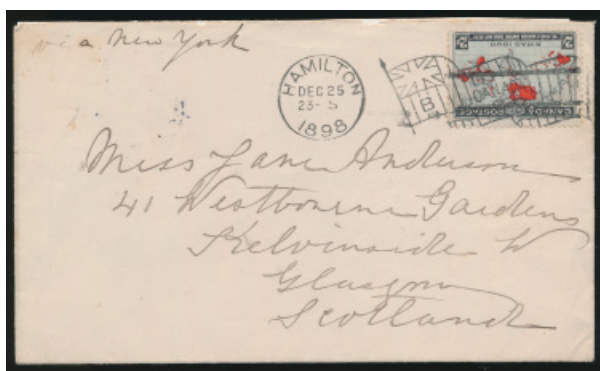 via New York
HAMILTON
DEC 25
23- 5
1898
B
CANADA
XMAS 1898
CANADA POSTAGE
Miss Jane Anderson
41 Westbourne Gardens
Kelvinside W
Glasgow
Scotland